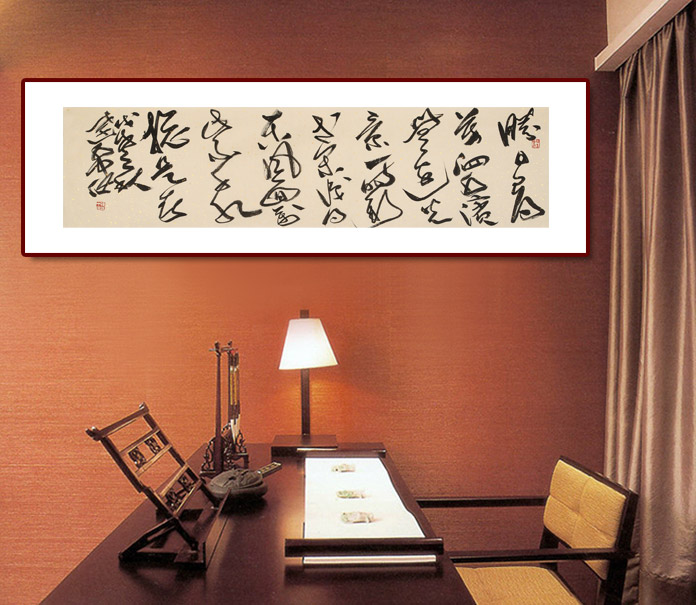 勝日尋
芳泗水濱
無邊光
景一時新
等閑識得
東風面萬
紫千紅
總是春